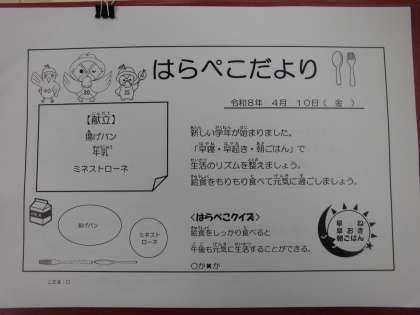 はらぺこだより
令和8年 4月 10日( 金 )
【献立】
揚げパン
牛乳
ミネストローネ
新しい学年が始まりました。
「早寝・早起き・朝ごはん」で
生活のリズムを整えましょう。
給食をもりもり食べて元気に過ごしましょう。
<はらぺこクイズ>
給食をしっかり食べると
午後も元気に生活することができる。
○か✖か
早 ね
早 おき
朝ごはん
あげパン
ミネスト
ローネ
こたえ:○